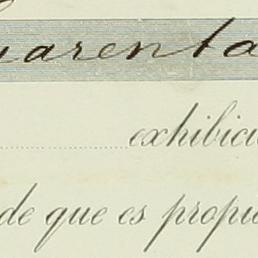 uarenta
exhibici
de que es propi